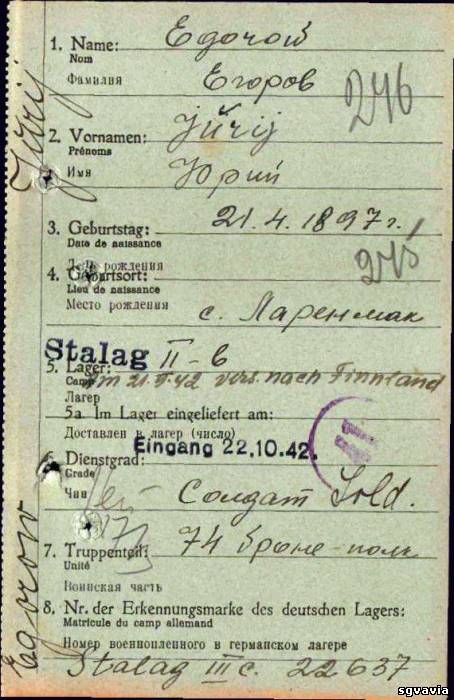 1. Name:
Nom
Фамилия
Егоров
246
2. Vornamen: Jürij
Prénoms
Имя Юрий
Jürij
3. Geburtstag: 21.4.1897 г.
Date de naissance
День рождения
4. Geburtsort:
Lieu de naissance
Место рождения с.
Stalag II-B
5. Lager: 21. 42 vers. nach Finnland
Camp
Лагер
5a. Im Lager eingeliefert am:
Доставлен в лагер (число)
Eingang 22.10.42.
6. Dienstgrad:
Grade
Чин Солдат Sold.
7. Truppenteil: 74 броне-полк
Unité
Воинская часть
8. Nr. der Erkennungsmarke des deutschen Lagers:
Matricule du camp allemand
Номер военнопленного в германском лагере
Stalag III c. 22637
Egorow
sgvavia